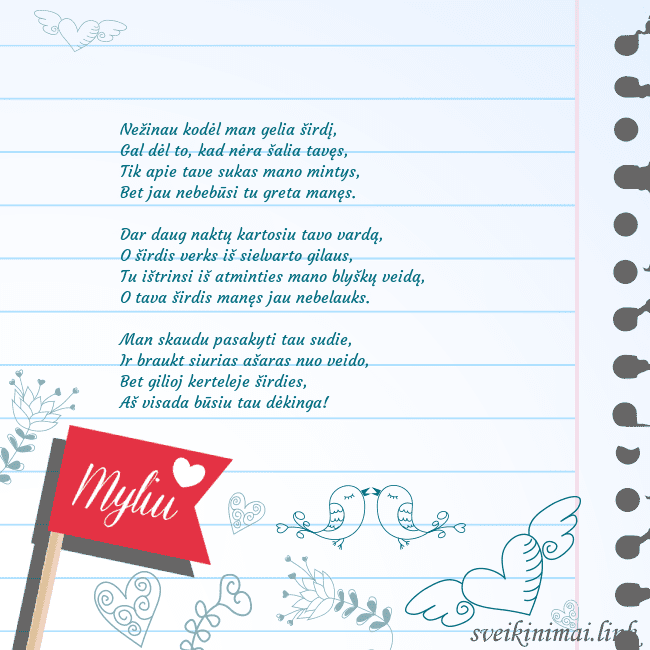 Nežinau kodėl man gelia širdį,
Gal dėl to, kad nėra šalia tavęs,
Tik apie tave sukas mano mintys,
Bet jau nebebūsi tu greta manęs.

Dar daug naktų kartosiu tavo vardą,
O širdis verks iš sielvarto gilaus,
Tu ištrinsi iš atminties mano blyškų veidą,
O tava širdis manęs jau nebelauks.

Man skaudu pasakyti tau sudie,
Ir braukt siurias ašaras nuo veido,
Bet gilioj kerteleje širdies,
Aš visada būsiu tau dėkinga!

Myliu
sveikinimai.link